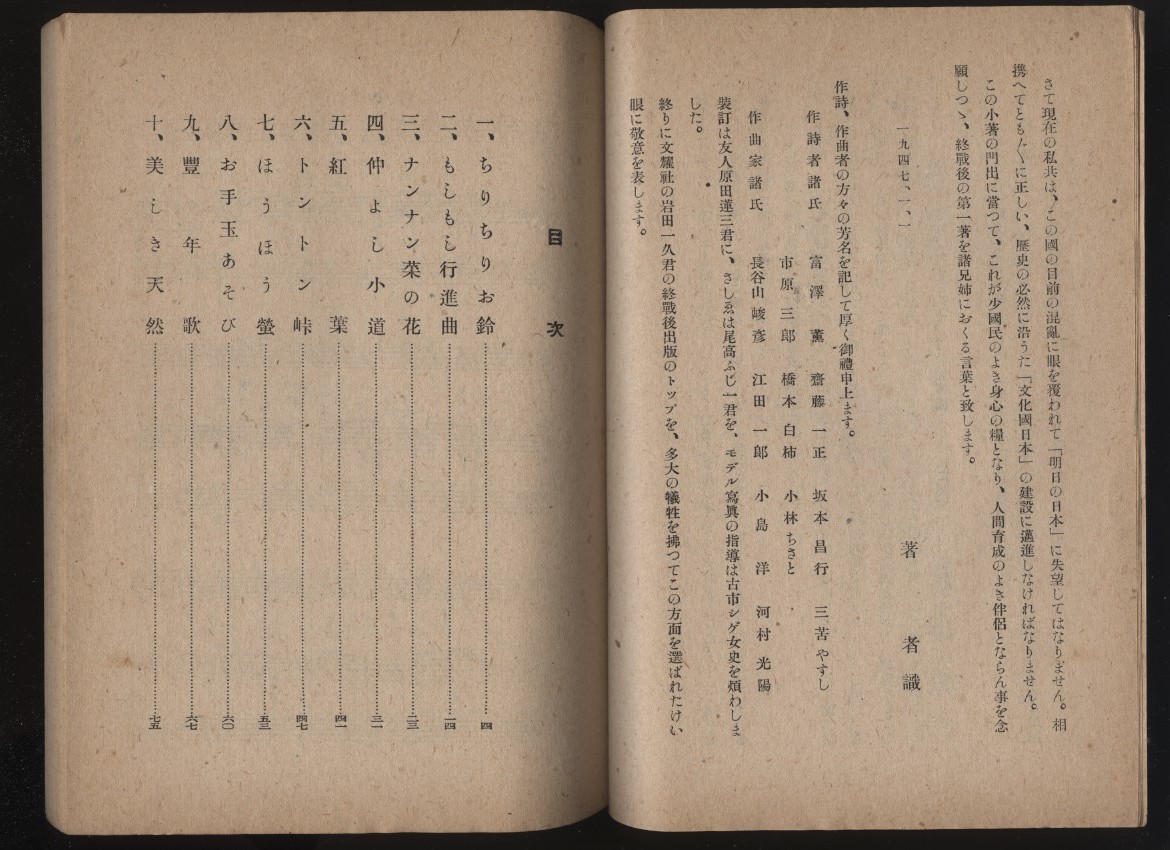 さて現在の私共は、この國の目前の混亂に眼を覆われて「明日の日本」に失望してはなりません。相
携へてとも〴〵に正しい、歴史の必然に沿うた「文化國日本」の建設に邁進しなければなりません。
この小著の門出に當つて、これが少國民のよき身心の糧となり、人間育成のよき伴侶とならん事を念
願しつゝ、終戰後の第一著を諸兄姉におくる言葉と致します。
一九四七、一、一
著者識
作詩、作曲者の方々の芳名を記して厚く御禮申上ます。
作詩者諸氏 富澤薫 齋藤一正 坂本昌行 三苫やすし
市原三郎 橋本白柿 小林ちさと
作曲家諸氏 長谷山峻彦 江田一郎 小島洋 河村光陽
装訂は友人原田蓮三君に、さしゑは尾高ふじ一君を、モデル寫眞の指導は古市シゲ女史を煩わしま
した。
終りに文耀社の岩田一久君の終戰後出版のトップを、多大の犠牲を拂つてこの方面を選ばれたけい
眼に敬意を表します。
目次
一、ちりちりお鈴 四
二、もしもし行進曲 一四
三、ナンナン菜の花 二三
四、仲よし小道 三一
五、紅葉 四一
六、トントン峠 四七
七、ほうほう螢 五三
八、お手玉あそび 六〇
九、豐年歌 六七
十、美しき天然 七五